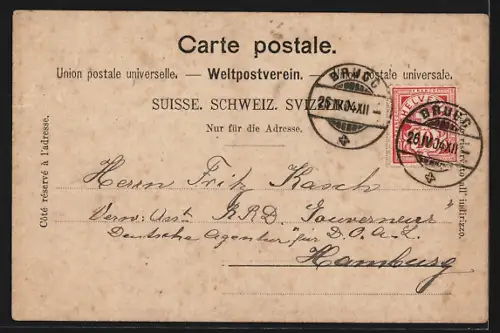 Carte postale.
Union postale universelle. — Weltpostverein. — Union postale universale.
SUISSE. SCHWEIZ. SVIZZERA.
Nur für die Adresse.
Côté réservé à l'adresse.
BRUGG
26.IV.04.XII
HELVETIA
BRUGG
26.IV.04.XII
riservato all'indirizzo.
Herrn Fritz Kasch
R.R.D. Gouverneur
Deutsche Agentur für D.O.A.L
Hamburg